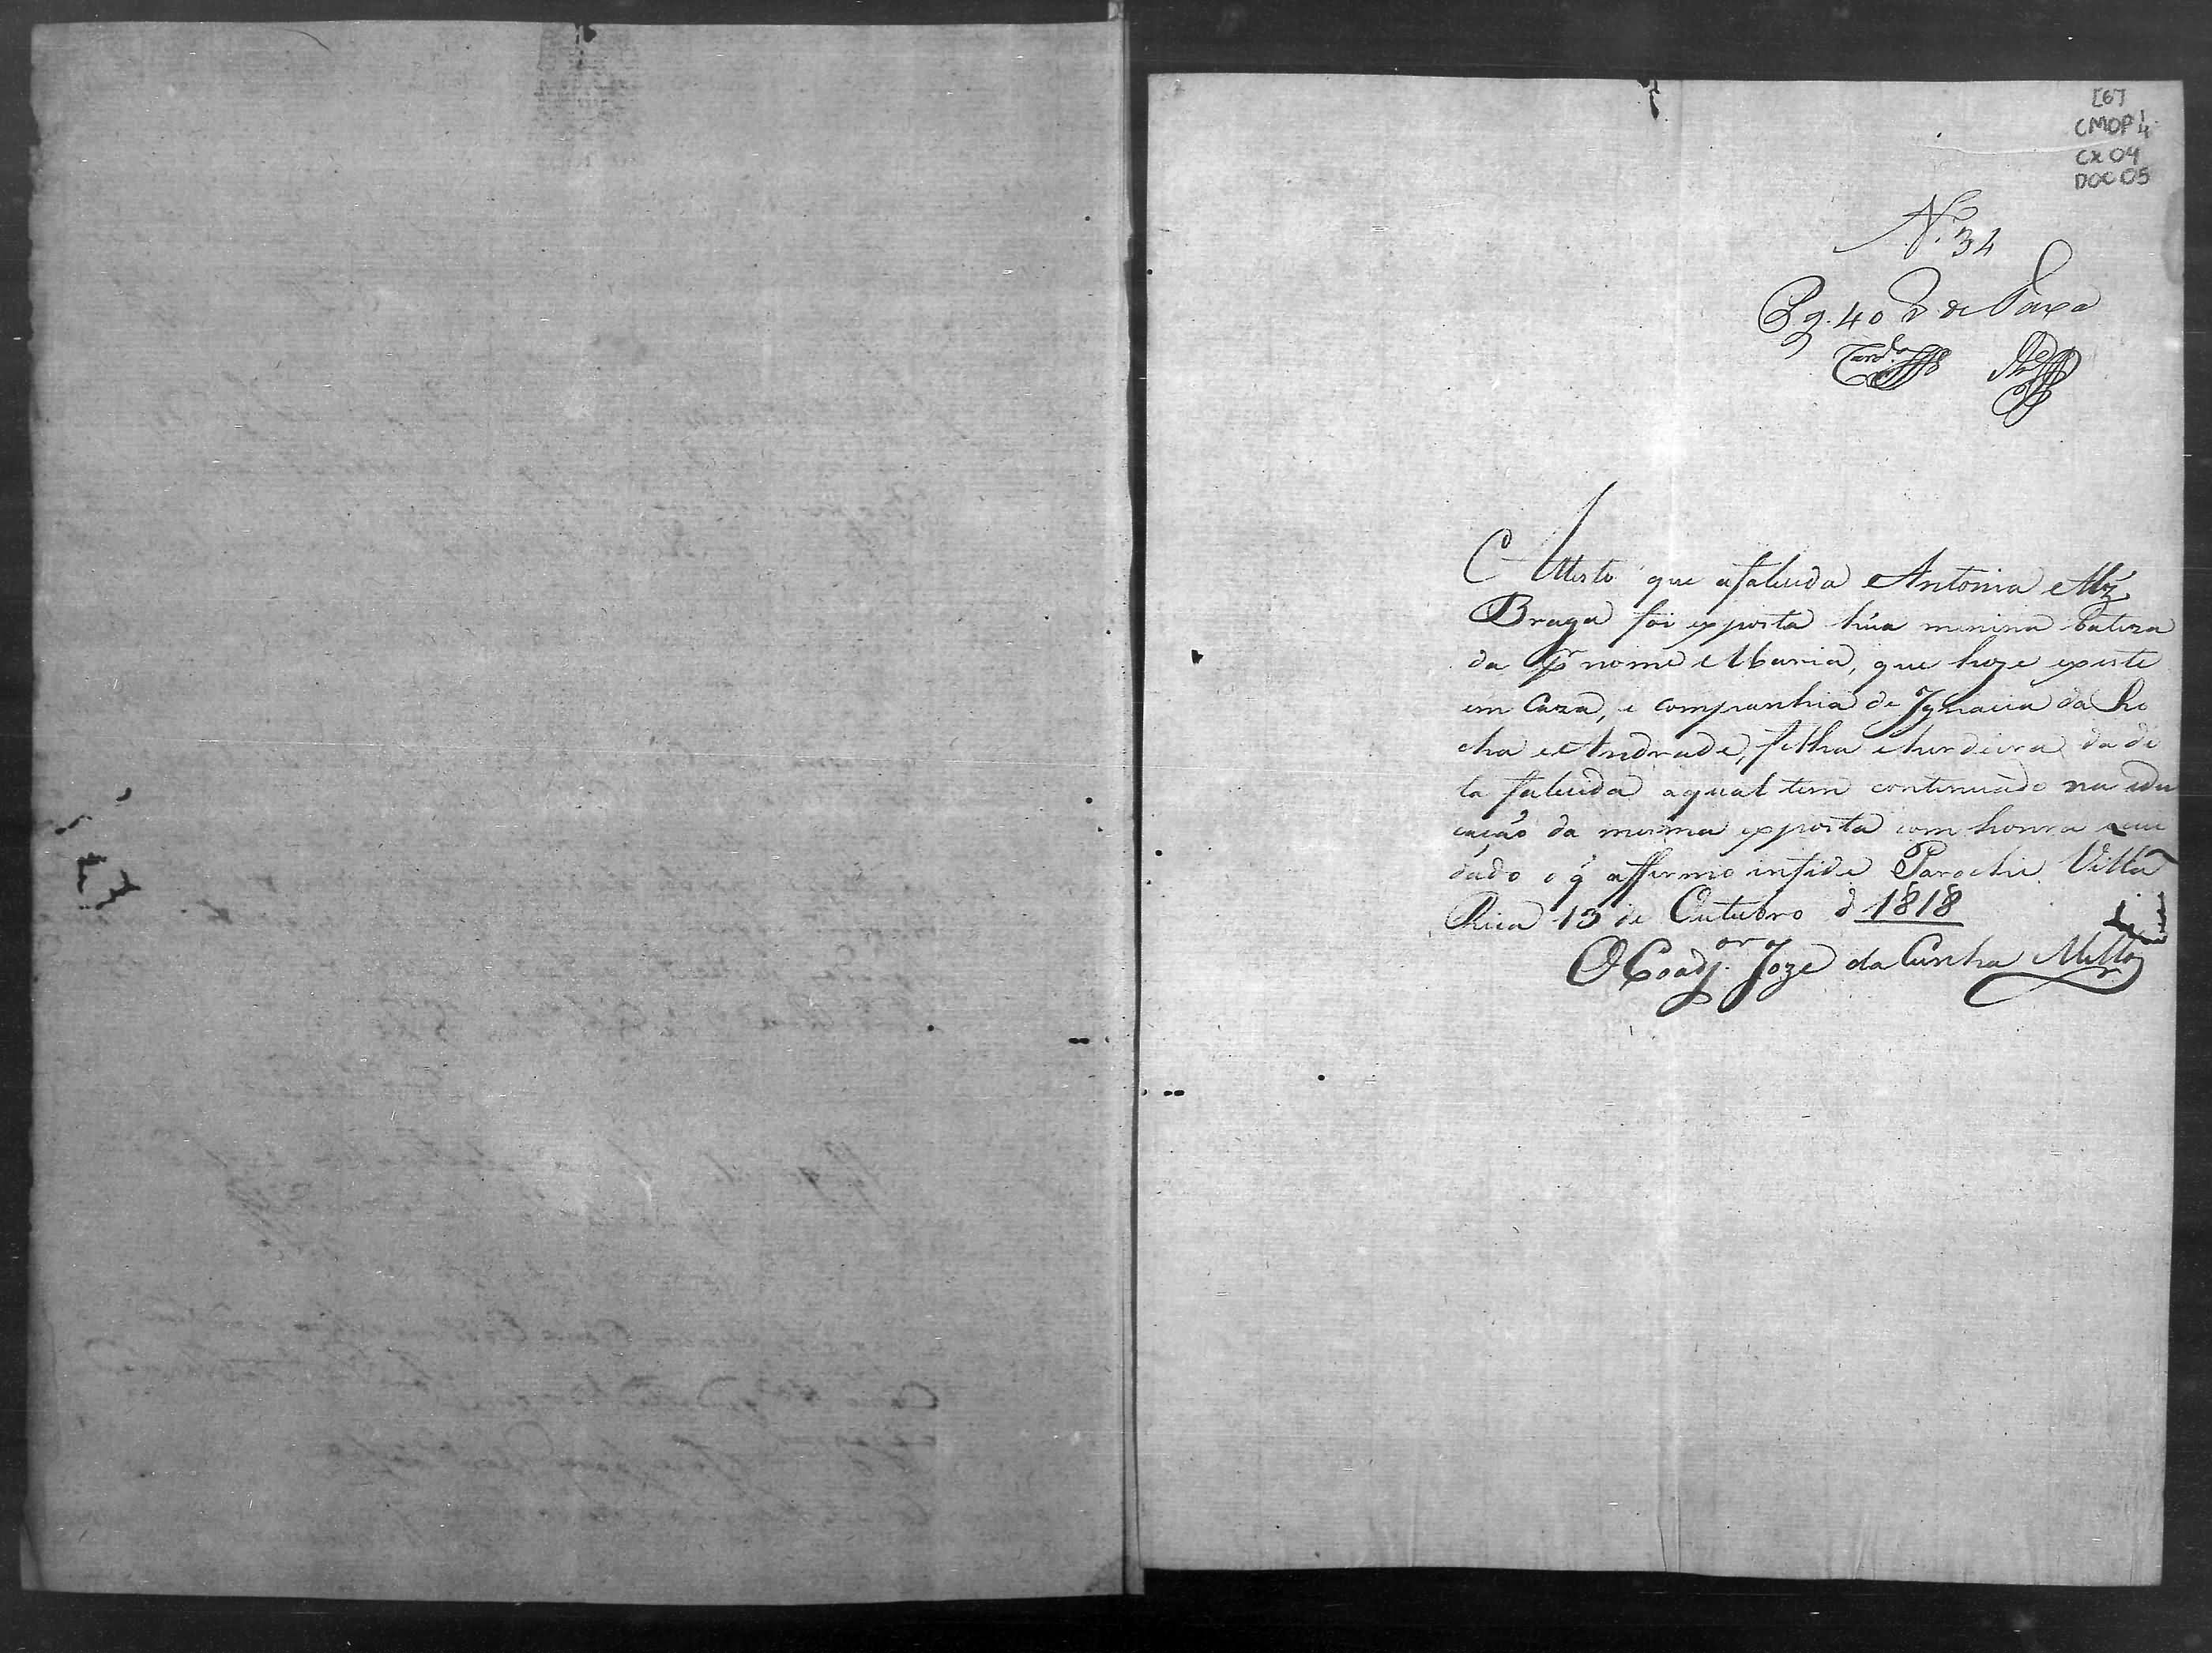 [6]
CMOP 4
CX 04
DOC 05
N.º 34
Pg. 40 rs de Taxa
Attesto que afalecida Antonia Alz
Braga foi exposta húa menina batiza
da pr nome Maria, que hoje existe
em Caza, e companhia de Ignacia da Ro
cha e Andrade, filha eherdeira da di
ta falecida aqual tem continuado na edu
cação da mesma exposta com honra ecui
dádo o q̃ affirmo infide Parochi. Villa
Rica 13 de Outubro d 1818
O Coadj.or Joze da Cunha Mello